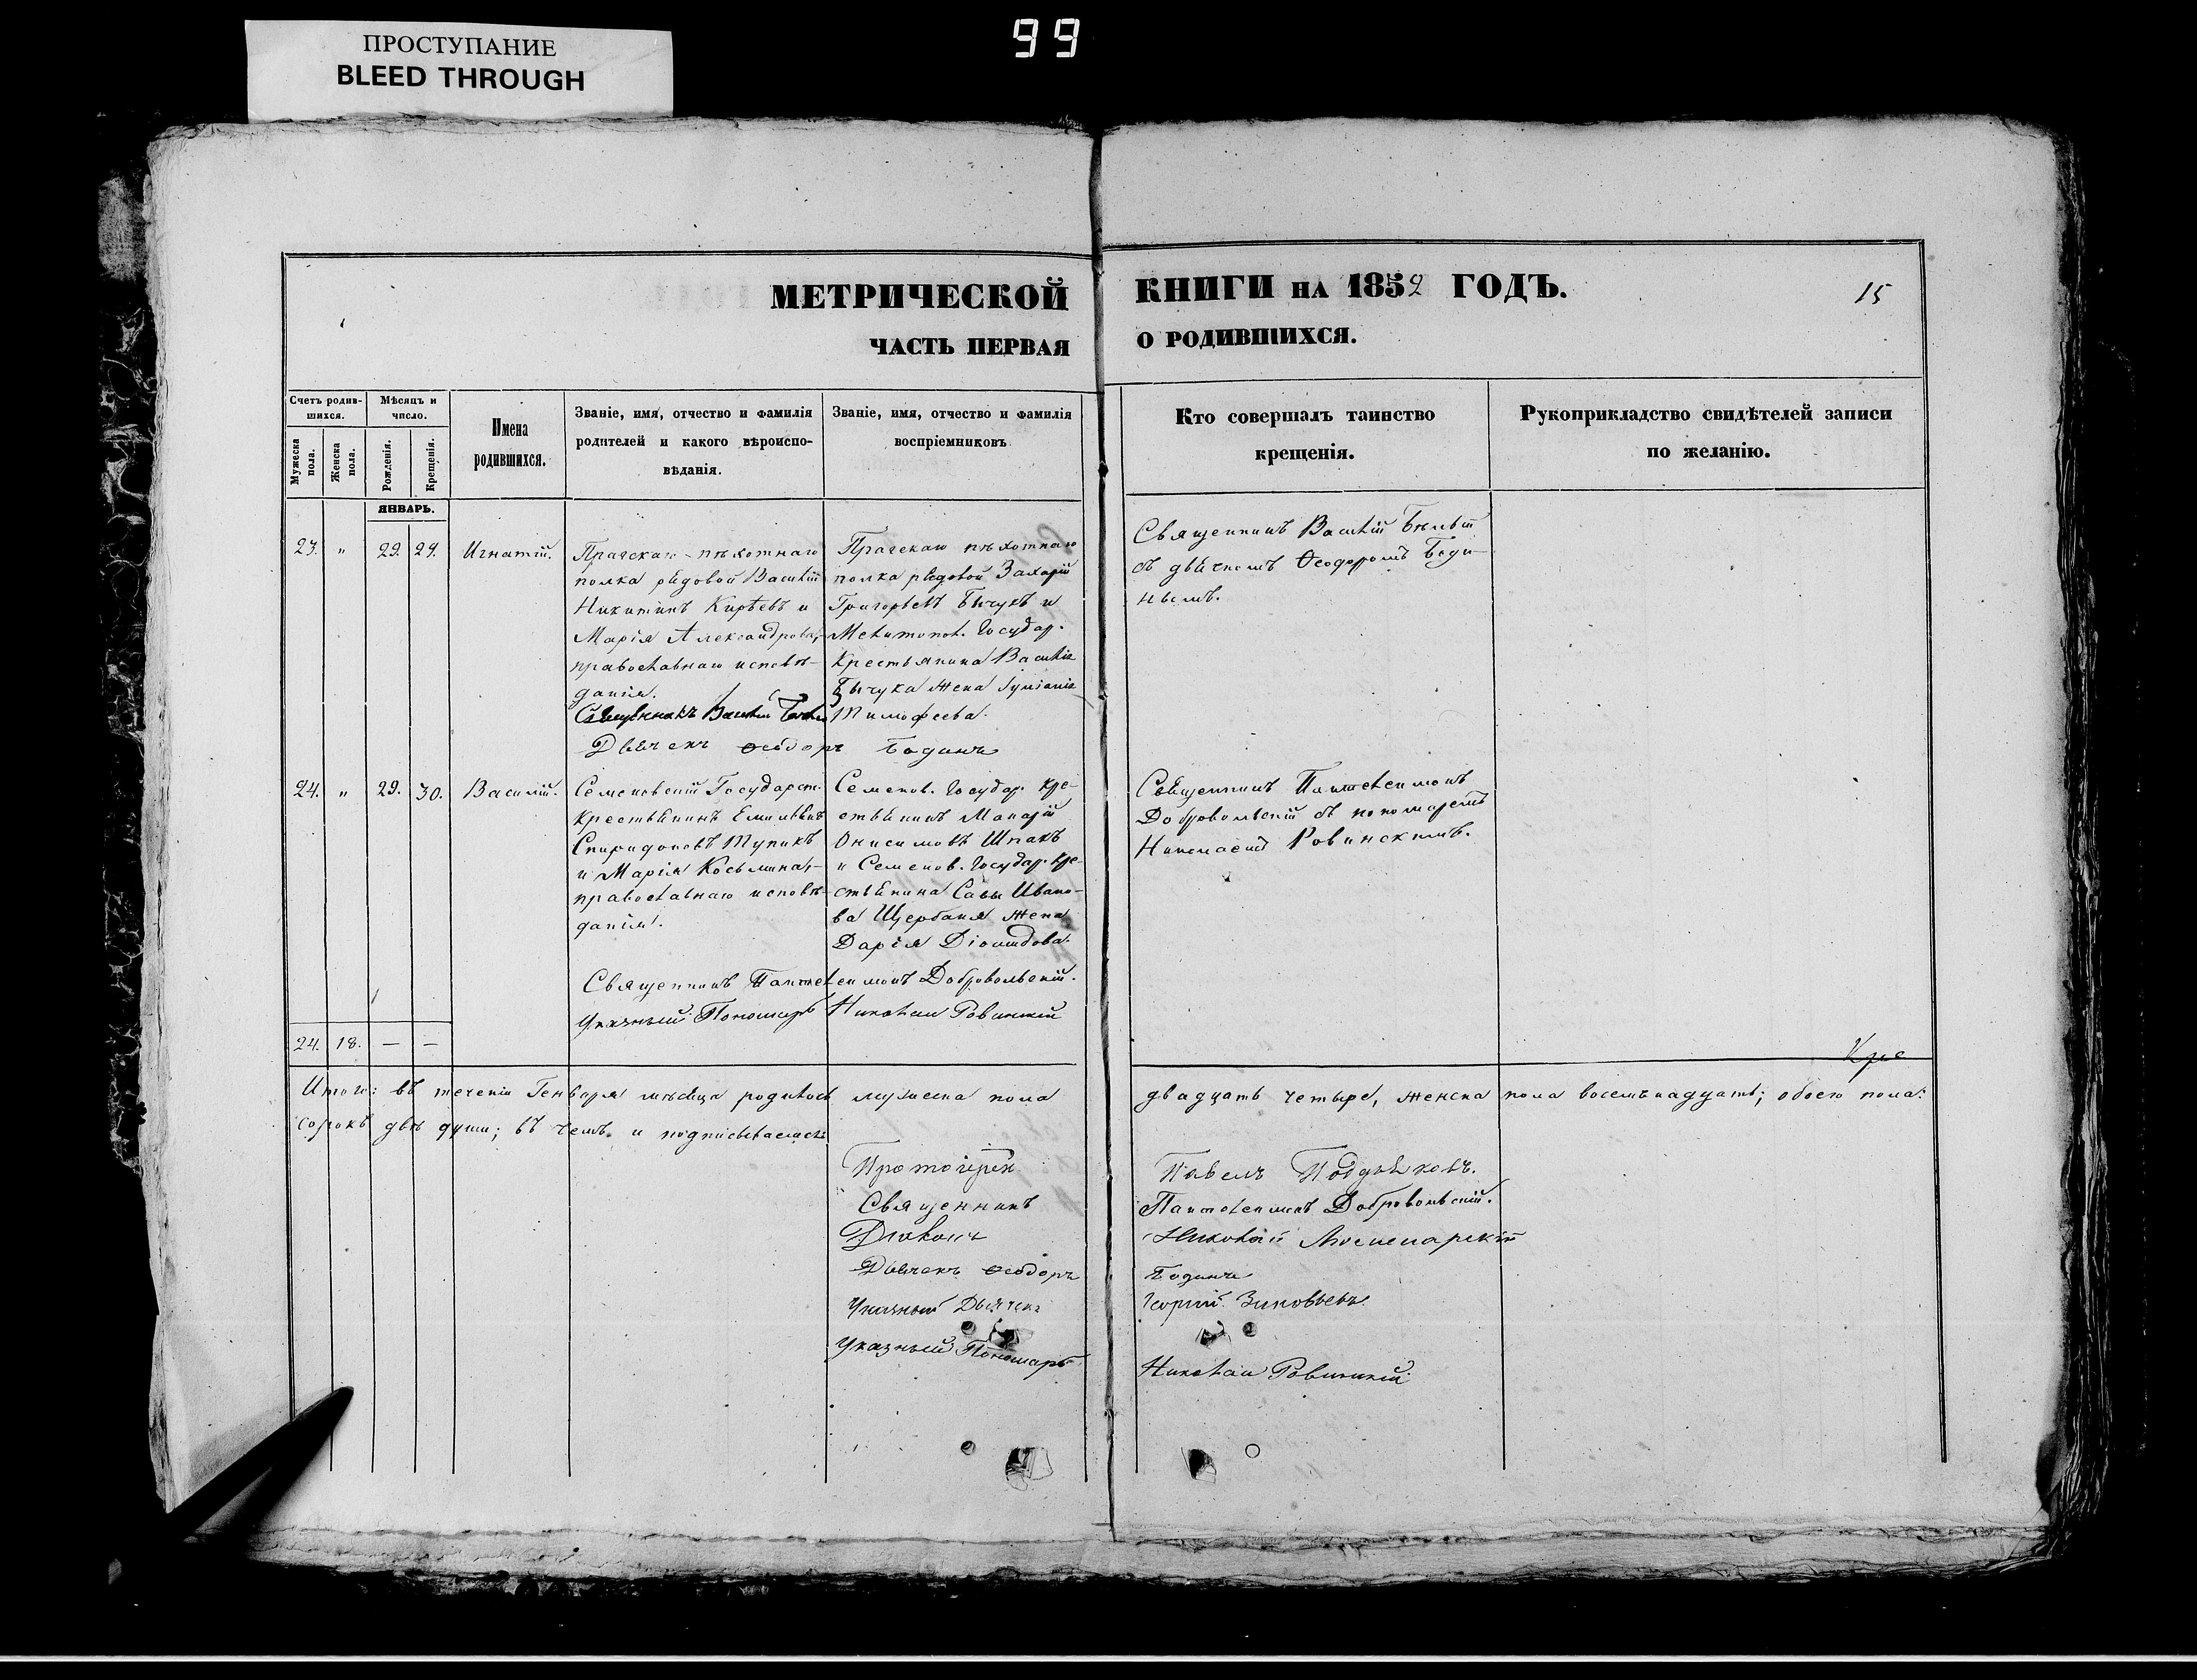 ПРОСТУПАНИЕ
BLEED THROUGH
99
МЕТРИЧЕСКОЙ КНИГИ НА 1852 ГОДЪ.
15
ЧАСТЬ ПЕРВАЯ О РОДИВШИХСЯ.
Счетъ родив-
шихся.
Мужеска пола.
Женска пола.
Мѣсяцъ и
число.
Рожденія.
Крещенія.
Имена
родившихся.
Званіе, имя, отчество и фамилія
родителей и какого вѣроиспо-
вѣданія.
Званіе, имя, отчество и фамилія
воспріемниковъ
Кто совершалъ таинство
крещенія.
Рукоприкладство свидѣтелей записи
по желанію.
ЯНВАРЬ.
23. " 29. 29. Игнатій.
Пражскаго пѣхотнаго
полка рядовой Василій
Никитинъ Кирѣевъ и
Марія Александрова,
православнаго исповѣ-
данія.
Священникъ Василій
Дьячекъ Ѳеодоръ Бодинъ
Пражскаго пѣхотнаго
полка рядовой Захарій
Григорьевъ Бычукъ и
Государ.
Крестьянина Василія
Бычука жена
Тимофеева.
Священникъ Василій
съ дьячкомъ Ѳеодоромъ Боди-
нымъ.
24. " 29. 30. Василій.
Семеновскій Государст.
крестьянинъ Емиліянъ
Спиридоновъ Тупикъ
и Марія Косьмина,
православнаго исповѣ-
данія.
Семенов. Государ. кре-
стьянинъ Макарій
Онисимовъ Шпакъ
и Семенов. Государ. кре-
стьянина Савы Ивано-
ва Щербака жена
Дарія Діомидова.
Священникъ Пантелеимонъ
Добровольскій съ пономаремъ
Николаемъ Ровинскимъ.
Священникъ Пантелеимонъ Добровольскій.
Указный Пономарь Николай Ровинскій
24. 18. — —
Итого: въ теченіи Генваря мѣсяца родилось мужеска пола двадцать четыре, женска пола восемьнадцать; обоего пола:
сорокъ двѣ души; въ чемъ и подписываемся:
Протоіерей Павелъ
Священникъ Пантелеимонъ Добровольскій.
Діаконъ Николай
Дьячекъ Ѳеодоръ Бодинъ
Указный Дьячекъ Георгій Зиновьевъ.
Указный Пономарь Николай Ровинскій